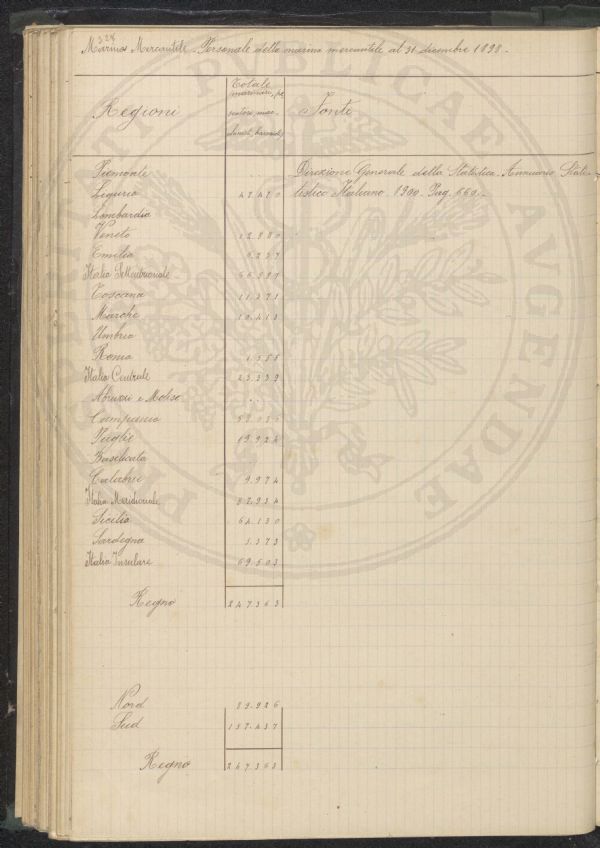 324
Marina Mercantile - Personale della marina mercantile al 31 dicembre 1898 -
Regioni
Totale
Fonti
Piemonte
Direzione Generale della Statistica. Annuario Stati-
Liguria
tistico Italiano 1900. Pag. 660.-
Lombardia
Veneto 12.880
Emilia
Italia Settentrionale 66.587
Toscana 11.371
Marche 10.413
Umbria
Roma 1.555
Italia Centrale 23.339
Abruzzi e Molise
Campania
Puglie 19.924
Basilicata
Calabrie 9.974
Italia Meridionale 87.934
Sicilia 64.130
Sardegna 5.373
Italia Insulare 69.503
Regno 247363
Nord 89.926
Sud 157.437
Regno 247363
PRINCIPIAT PUBLICAE AVCENDAE